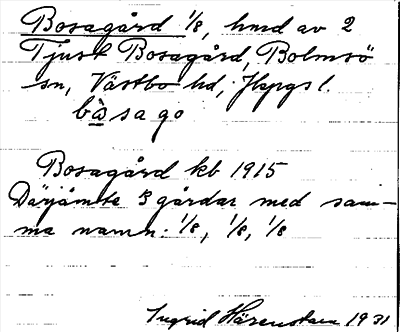 Bosagård 1/8, hmd av 2
Tjust Bosagård, Bolmsö
sn, Västbo hd, Jkpgs l.
bà sa go
Bosagård kb 1915
Därjämte 3 gårdar med sam-
ma namn. 1/8, 1/8, 1/8
Ingrid Härenstam 1931